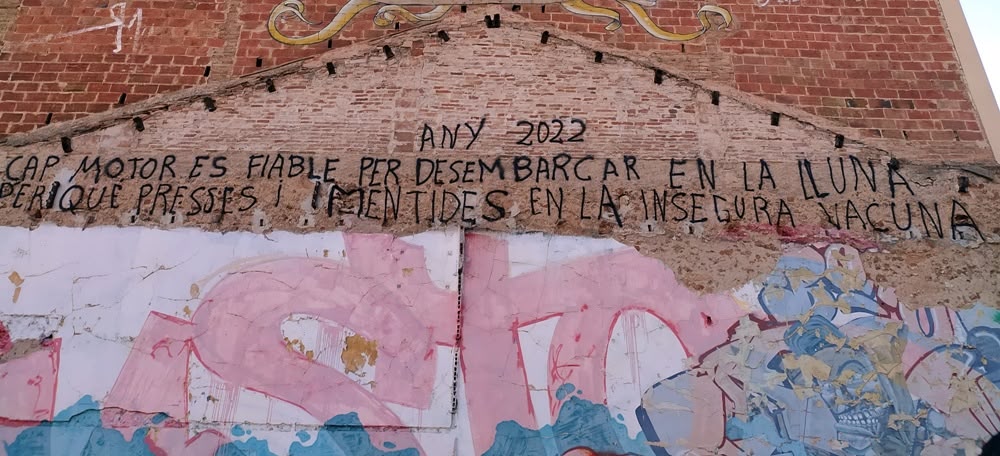 ANY 2022
CAP MOTOR ES FIABLE PER DESEMBARCAR EN LA LLUNA
PERIQUÈ PRESSES I MENTIDES EN LA INSEGURA VACUNA